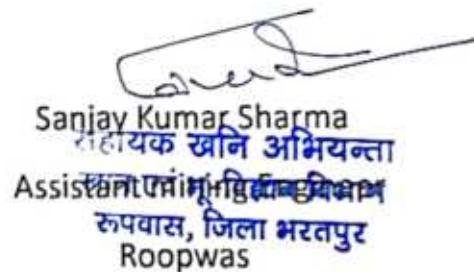 Sanjay Kumar Sharma
सहायक खनि अभियन्ता
Assistant mining Engineer
खान एवं भू-विज्ञान विभाग
रुपवास, जिला भरतपुर
Roopwas